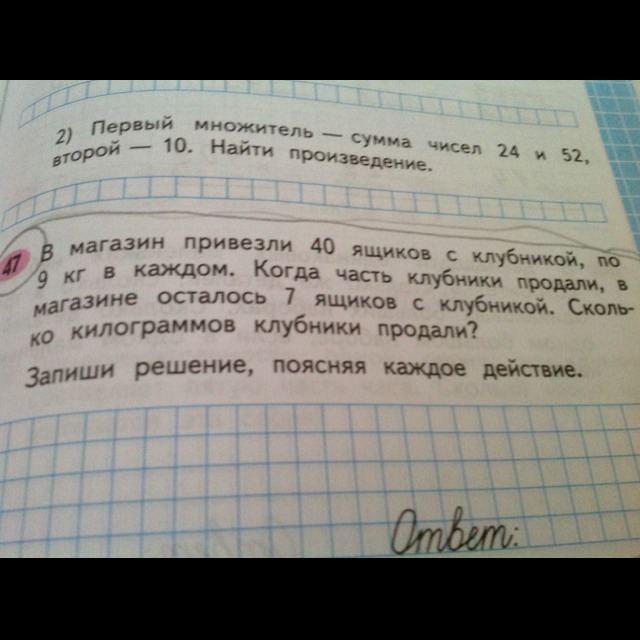 2) Первый множитель — сумма чисел 24 и 52,
второй — 10. Найти произведение.
47 В магазин привезли 40 ящиков с клубникой, по
9 кг в каждом. Когда часть клубники продали, в
магазине осталось 7 ящиков с клубникой. Сколь-
ко килограммов клубники продали?
Запиши решение, поясняя каждое действие.
Ответ: